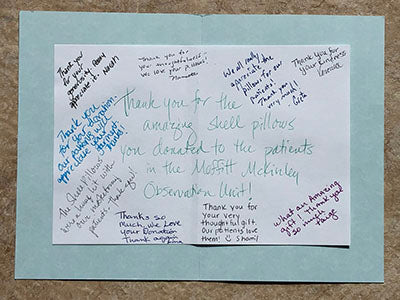 Thank you
for your
generosity. We really
appreciate it.
Thank you for
your thoughtfulness.
We love your pillows!
We all really
appreciate the
pillows for our
patients!
Thank you
very much!
Thank you for
your kindness
Thank you
for your donation.
our patients will
appreciate your
Thank you for the
amazing shell pillows
you donated to the patients
in the Moffitt McKinley
Observation Unit!
The Shell Pillows
were a huge hit with
our mastectomy
patients. Thank you!
Thanks so
much, we Love
your Donation
Thank again
Thank you for
your very
thoughtful gift.
Our patients love
them! ☺ Shami
What an Amazing
gift! Thank you
so much